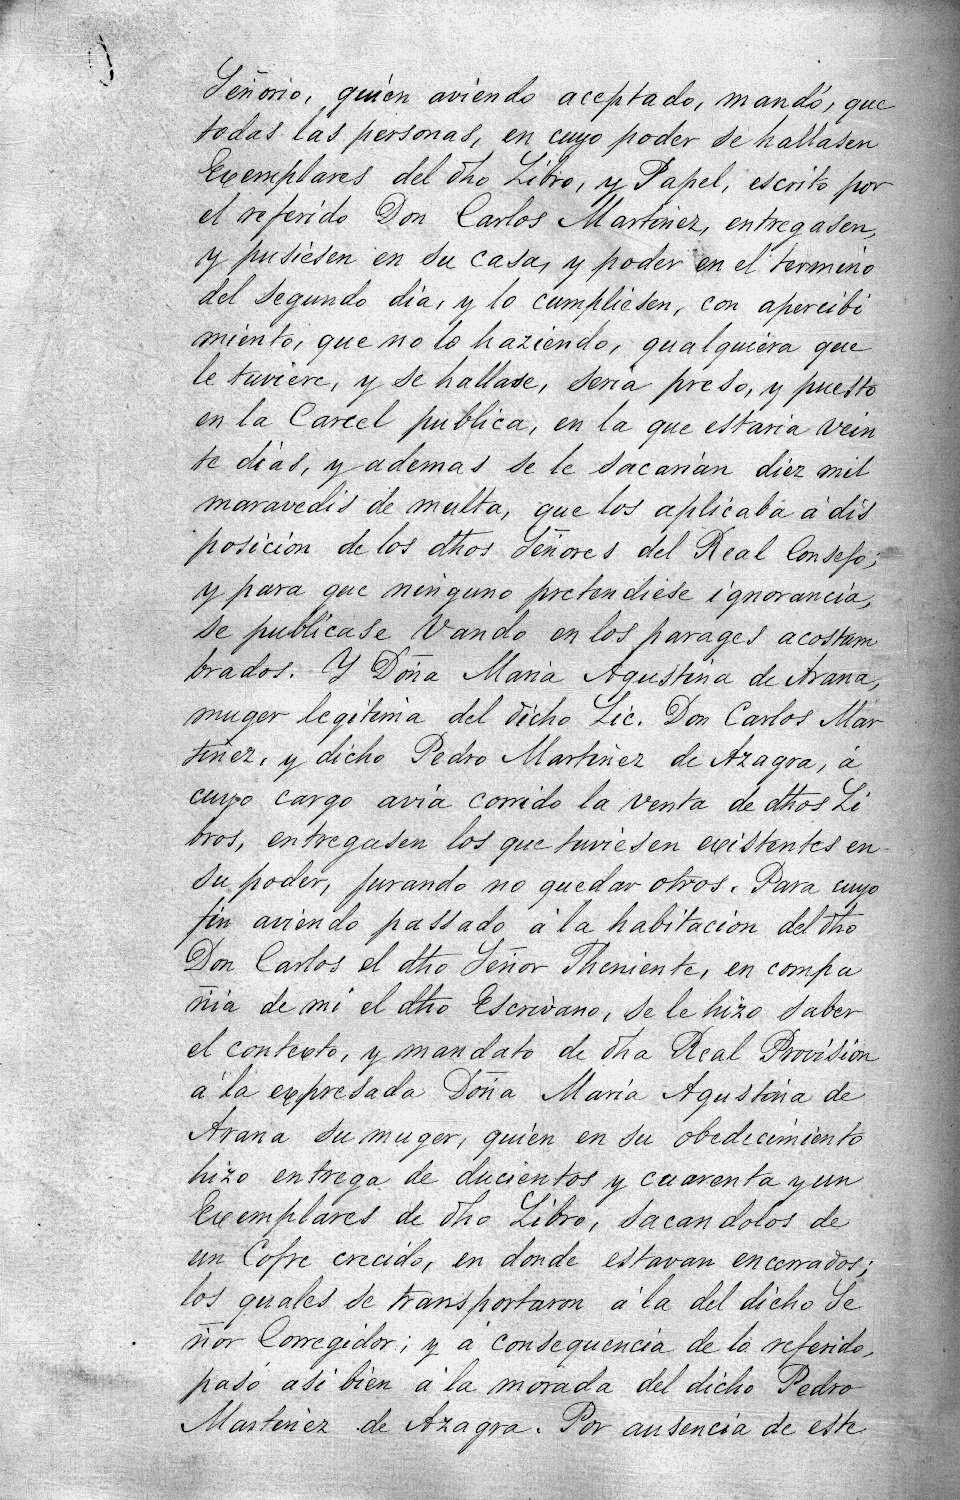 Señorio, quien aviendo aceptado, mandó, que
todas las personas, en cuyo poder se hallasen
Exemplares del dho Libro, y Papel, escrito por
el referido Don Carlos Martinez, entregasen,
y pusiesen en su casa, y poder en el termino
del segundo dia, y lo cumpliesen, con apercibi
miento, que no lo haziendo, qualquiera que
le tuviere, y se hallase, seria preso, y puesto
en la Carcel publica, en la que estaria vein
te dias, y ademas se le sacarian diez mil
maravedis de multa, que los aplicaba á dis
posicion de los dhos Señores del Real Consejo;
y para que ninguno pretendiese ignorancia,
se publicase Vando en los parages acostum
brados. Y Doña Maria Agustina de Arana,
muger legitima del dicho Lic. Don Carlos Mar
tinez, y dicho Pedro Martinez de Azagra, á
cuyo cargo avia corrido la venta de dhos Li
bros, entregasen los que tuviesen existentes en
su poder, jurando no quedar otros. Para cuyo
fin aviendo passado á la habitacion del dho
Don Carlos el dho Señor Theniente, en compa
ñia de mi el dho Escrivano, se le hizo saber
el contexto, y mandato de dha Real Provision
á la expresada Doña Maria Agustina de
Arana su muger, quien en su obedecimiento
hizo entrega de ducientos y cuarenta y un
Exemplares de dho Libro, sacandolos de
un Cofre crecido, en donde estavan encerrados;
los quales se transportaron á la del dicho Se
ñor Corregidor; y á consequencia de lo referido,
pasó asi bien á la morada del dicho Pedro
Martinez de Azagra. Por ausencia de este